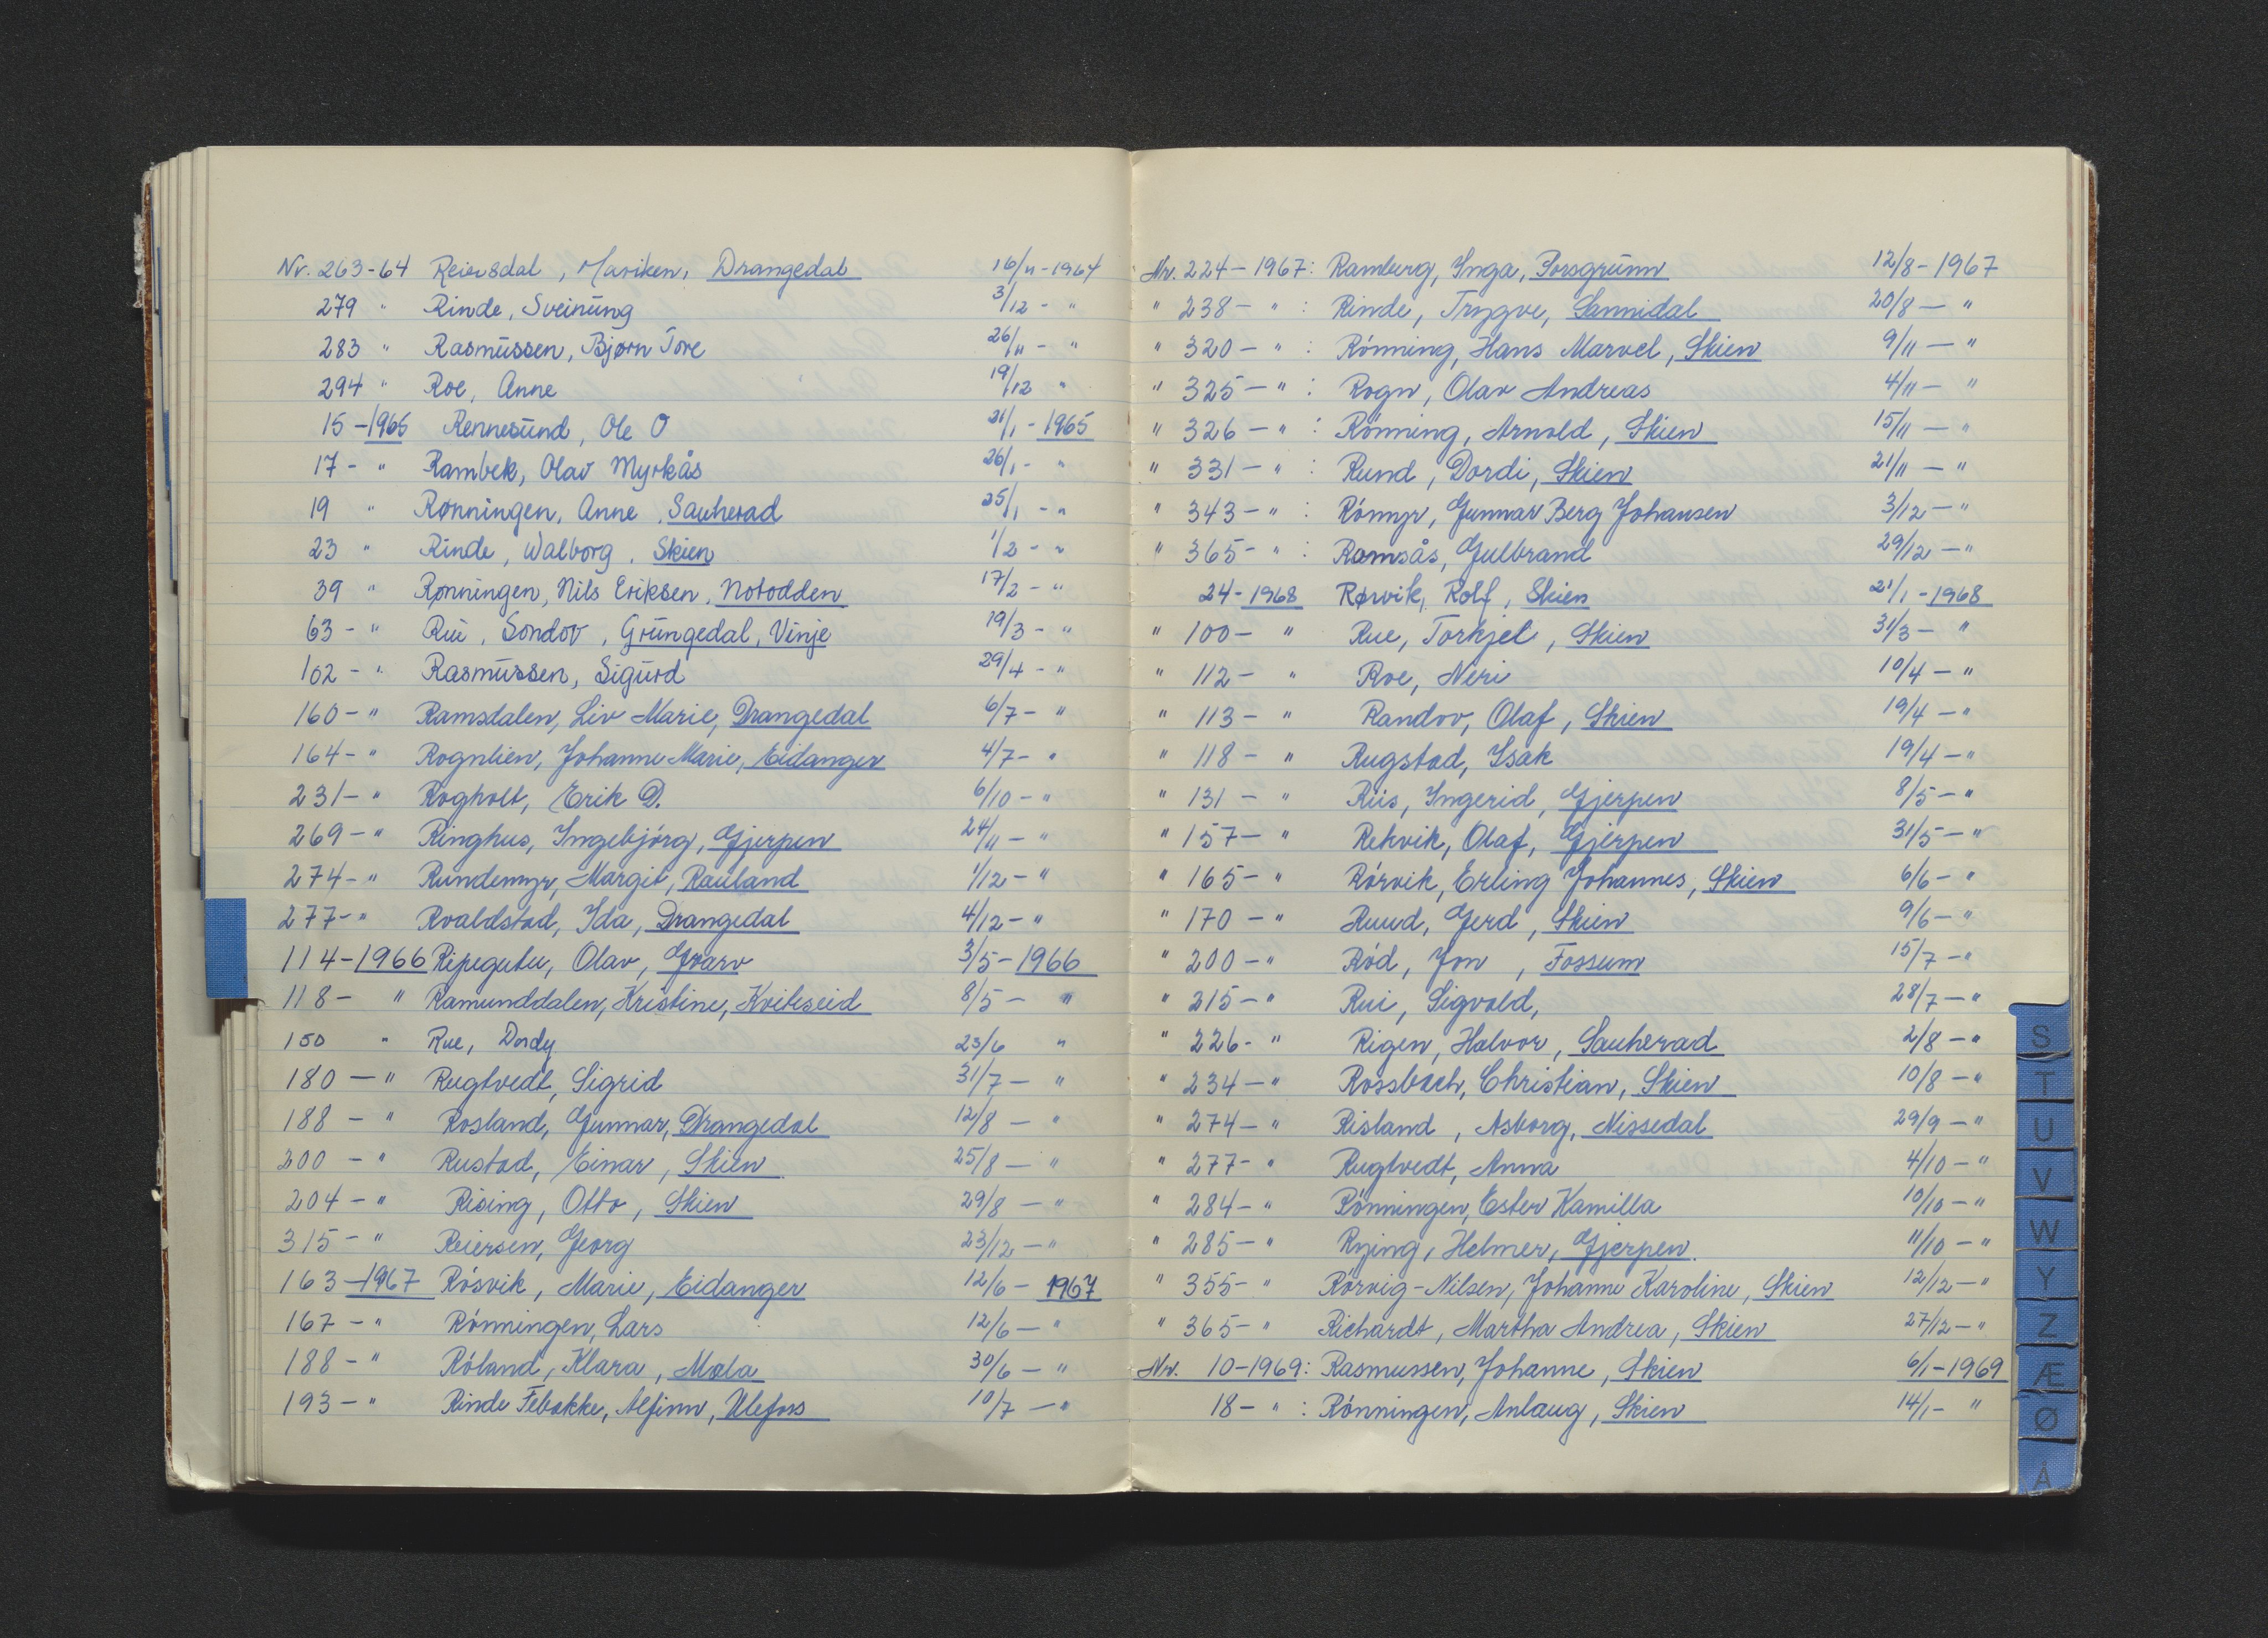 Nr. 263-64 Reiersdal, Mariken, Drangedal 16/11-1964
279 " Rinde, Sveinung 3/12 - "
283 " Rasmussen, Bjørn Tore 26/11 - "
294 " Roe, Anne 19/12 "
15-1965 Rennesund, Ole O 21/1-1965
17- " Rambek, Olav Myrkås 26/1- "
19 " Rønningen, Anne, Sauherad 25/1 - "
23 " Rinde, Walborg, Skien 1/2 - "
39 " Rønningen, Nils Eriksen, Notodden 17/2 - "
63 - " Rui, Sondov, Grungedal, Vinje 19/3 - "
102 - " Rasmussen, Sigurd 29/4 - "
160 - " Ramsdalen, Liv Marie, Drangedal 6/7 - "
164 - " Rognlien, Johanne Marie, Eidanger 4/7 - "
231 - " Rogholt, Erik D. 6/10 - "
269 - " Ringhus, Ingebjørg, Gjerpen 24/11 - "
274 - " Rundemyr, Margit, Rauland 1/12 - "
277 - " Roaldstad, Ida, Drangedal 4/12 - "
114-1966 Ripegutu, Olav, Gvarv 3/5-1966
118 - " Ramunddalen, Kristine, Kviteseid 8/5 - "
150 " Rue, Dordy 23/6 "
180 - " Rugtvedt, Sigrid 31/7 - "
188 - " Rosland, Gunnar, Drangedal 12/8 - "
200 - " Rustad, Einar, Skien 25/8 - "
204 - " Rising, Otto, Skien 29/8 - "
315 - " Reiersen, Georg 23/12 - "
163-1967 Røsvik, Marie, Eidanger 12/6-1967
167 - " Rønningen, Lars 12/6 - "
188 - " Røland, Klara, Mæla 30/6 - "
193 - " Rinde Febakke, Alfinn, Ulefoss 10/7 - "
Nr. 224-1967: Ramberg, Inga, Porsgrunn 12/8-1967
" 238 - " : Rinde, Trygve, Sannidal 20/8 - "
" 320 - " : Rønning, Hans Marvel, Skien 9/11 - "
" 325 - " : Rogn, Olav Andreas 4/11 - "
" 326 - " : Rønning, Arnold, Skien 15/11 - "
" 331 - " : Rund, Dordi, Skien 21/11 - "
" 343 - " : Rønmyr, Gunnar Berg Johansen 3/12 - "
" 365 - " : Ramsås, Gulbrand 29/12 - "
24-1968 Rørvik, Rolf, Skien 21/1-1968
" 100 - " Rue, Torkjel, Skien 31/3 - "
" 112 - " Roe, Neri 10/4 - "
" 113 - " Randov, Olaf, Skien 19/4 - "
" 118 - " Rugstad, Isak 19/4 - "
" 131 - " Riis, Ingerid, Gjerpen 8/5 - "
" 157 - " Rekvik, Olaf, Gjerpen 31/5 - "
" 165 - " Rørvik, Erling Johannes, Skien 6/6 - "
" 170 - " Ruud, Gerd, Skien 9/6 - "
" 200 - " Rød, Jon, Fossum 15/7 - "
" 215 - " Rui, Sigvald, 28/7 - "
" 226 - " Rigen, Halvor, Sauherad 2/8 - "
" 234 - " Rossbach, Christian, Skien 10/8 - "
" 274 - " Risland, Asborg, Nissedal 29/9 - "
" 277 - " Rugtvedt, Anna 4/10 - "
" 284 - " Rønningen, Ester Kamilla 10/10 - "
" 285 - " Rying, Helmer, Gjerpen. 11/10 - "
" 355 - " Rørvig-Nilsen, Johanne Karoline, Skien 12/12 - "
" 365 - " Richardt, Martha Andrea, Skien 27/12 - "
Nr. 10-1969: Rasmussen, Johanne, Skien 6/1-1969
18 - " : Rønningen, Anlaug, Skien 14/1 - "
S
T
U
V
W
Y
Z
Æ
Ø
Å